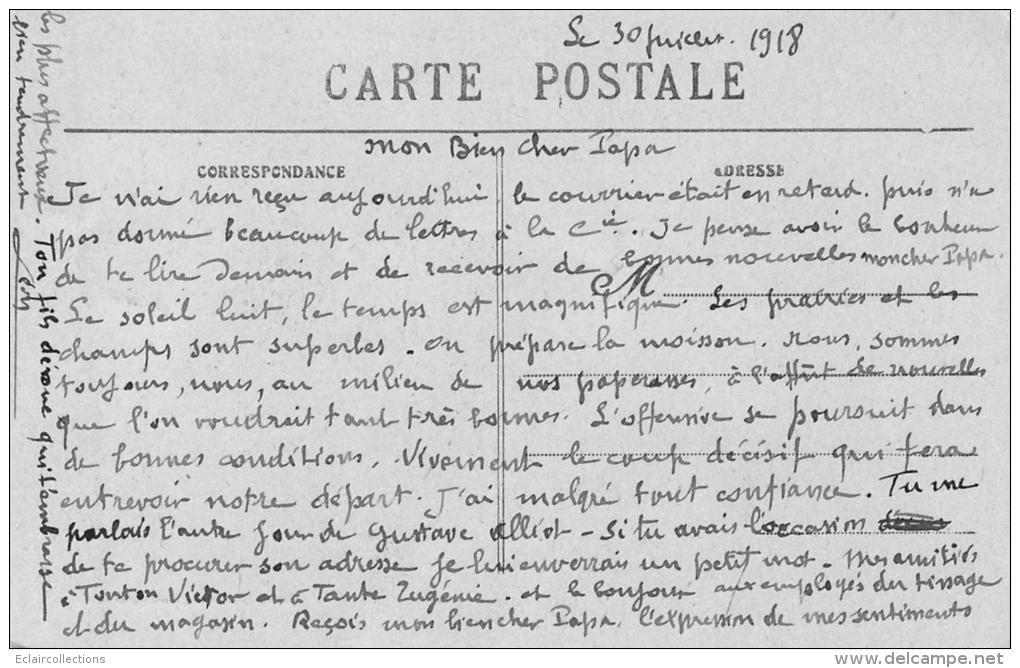 Le 30 Juillet. 1918
CARTE POSTALE
mon Bien cher Papa
CORRESPONDANCE
ADRESSE
Je n'ai rien reçu aujourd'hui le courrier était en retard. puis n'a
pas donné beaucoup de lettres à la Cie. Je pense avoir le bonheur
de te lire Demain et de recevoir de bonnes nouvelles mon cher Papa.
Le soleil luit, le temps est magnifique. Les prairies et les
champs sont superbes. On prépare la moisson. Nous, sommes
toujours, nous, au milieu de nos paperasses, à l'affût de nouvelles
que l'on voudrait tant très bonnes. L'offensive se poursuit dans
de bonnes conditions. Vivement le coup décisif qui fera
entrevoir notre départ. J'ai malgré tout confiance. Tu me
parlais l'autre jour de Gustave Alliot - Si tu avais l'occasion
de te procurer son adresse je lui enverrais un petit mot. Mes amitiés
à Tonton Victor et à Tante Eugénie. et le bonjour aux employés du tissage
et du magasin. Reçois mon bien cher Papa, l'expression de mes sentiments
les plus affectueux. Ton fils dévoué qui t'embrasse
bien tendrement
Eclaircollections
www.delcampe.net